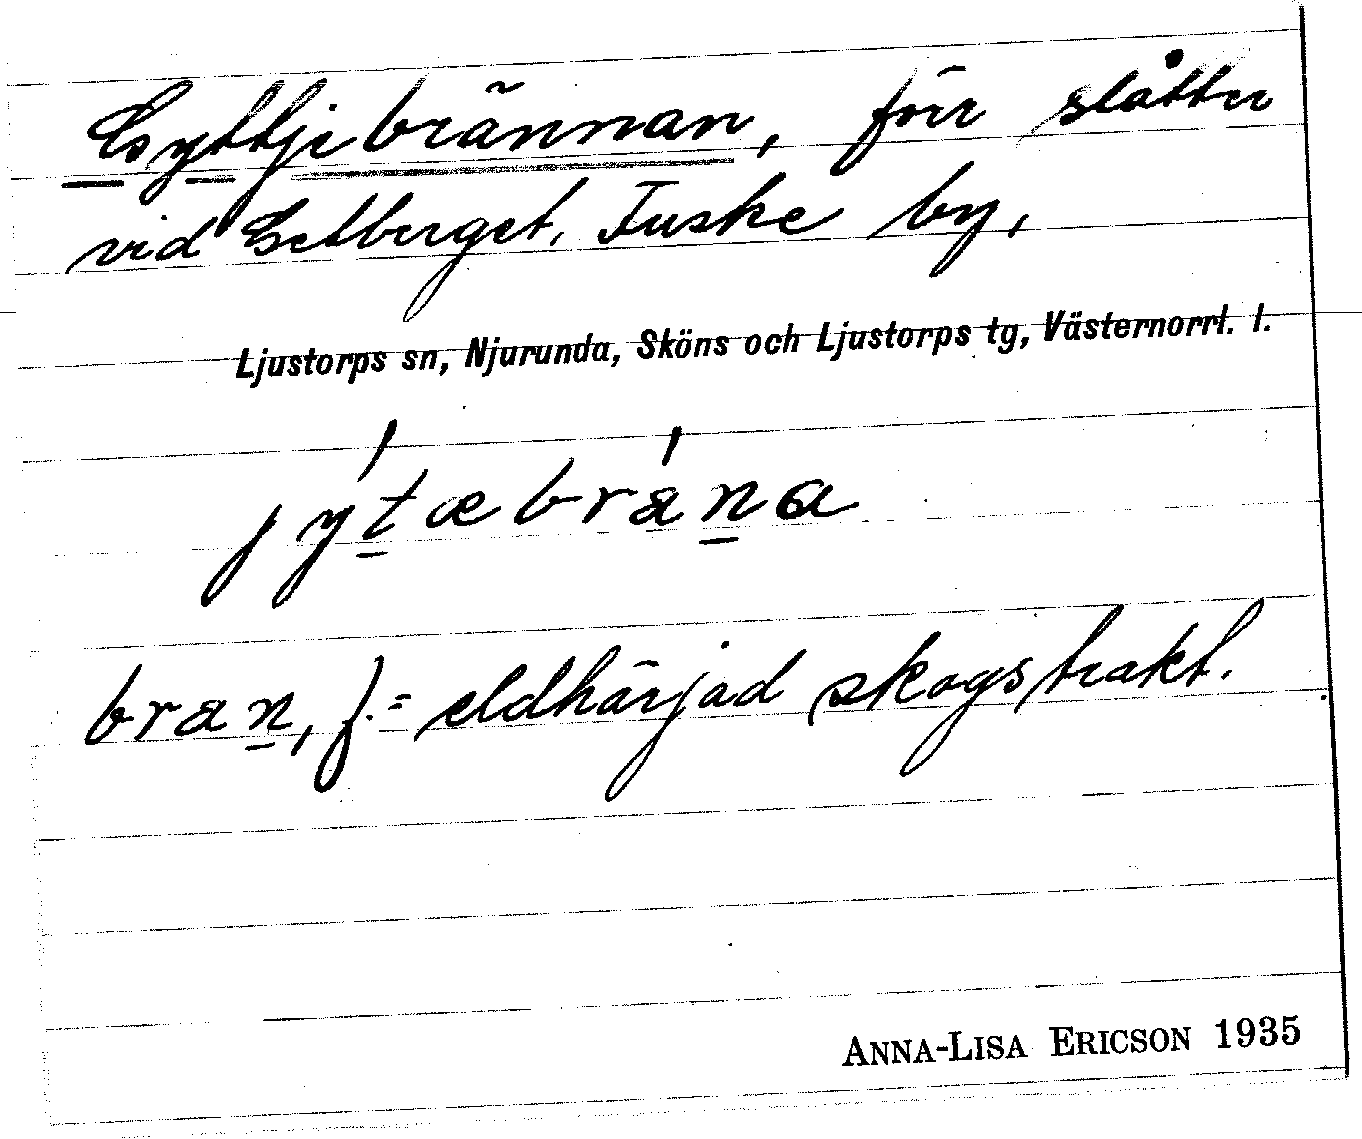 Gyttjebrännan, förr slåtter
vid Getberget, Fuske by,
Ljustorps sn, Njurunda, Sköns och Ljustorps tg, Västernorrl. l.
jýtæbrána
bran, f. = eldhärjad skogstrakt.
ANNA-LISA ERICSON 1935